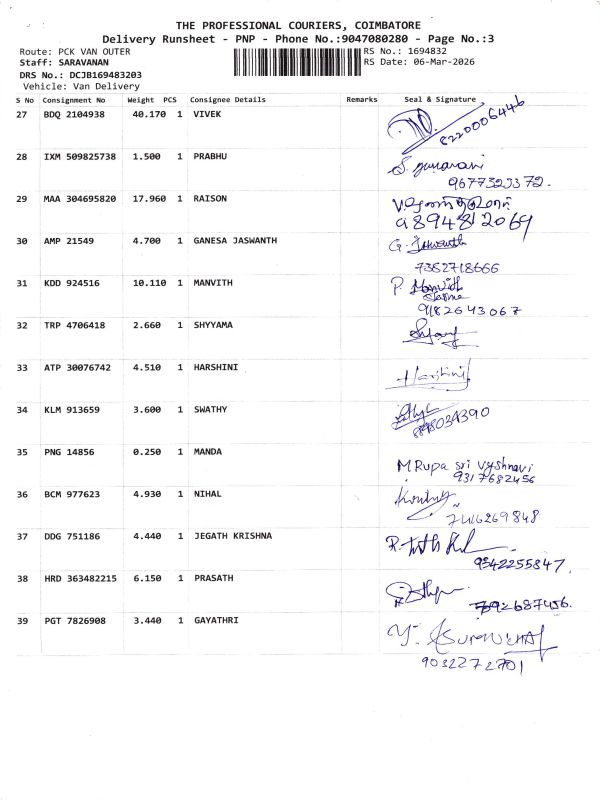 THE PROFESSIONAL COURIERS, COIMBATORE
Delivery Runsheet - PNP - Phone No.:9047080280 - Page No.:3
Route: PCK VAN OUTER RS No.: 1694832
Staff: SARAVANAN RS Date: 06-Mar-2026
DRS No.: DCJB169483203
Vehicle: Van Delivery
S No Consignment No Weight PCS Consignee Details Remarks Seal & Signature
27 BDQ 2104938 40.170 1 VIVEK
8220006446
28 IXM 509825738 1.500 1 PRABHU
S. gunavani
29 MAA 304695820 17.960 1 RAISON
9894812069
30 AMP 21549 4.700 1 GANESA JASWANTH
G. Jaswanth
7382718666
31 KDD 924516 10.110 1 MANVITH
P. Manvith
9182643067
32 TRP 4706418 2.660 1 SHYYAMA
33 ATP 30076742 4.510 1 HARSHINI
Harshini
34 KLM 913659 3.600 1 SWATHY
35 PNG 14856 0.250 1 MANDA
M Rupa sri vyshnavi
9317682456
36 BCM 977623 4.930 1 NIHAL
7416269848
37 DDG 751186 4.440 1 JEGATH KRISHNA
9342255847
38 HRD 363482215 6.150 1 PRASATH
39 PGT 7826908 3.440 1 GAYATHRI
9032272701